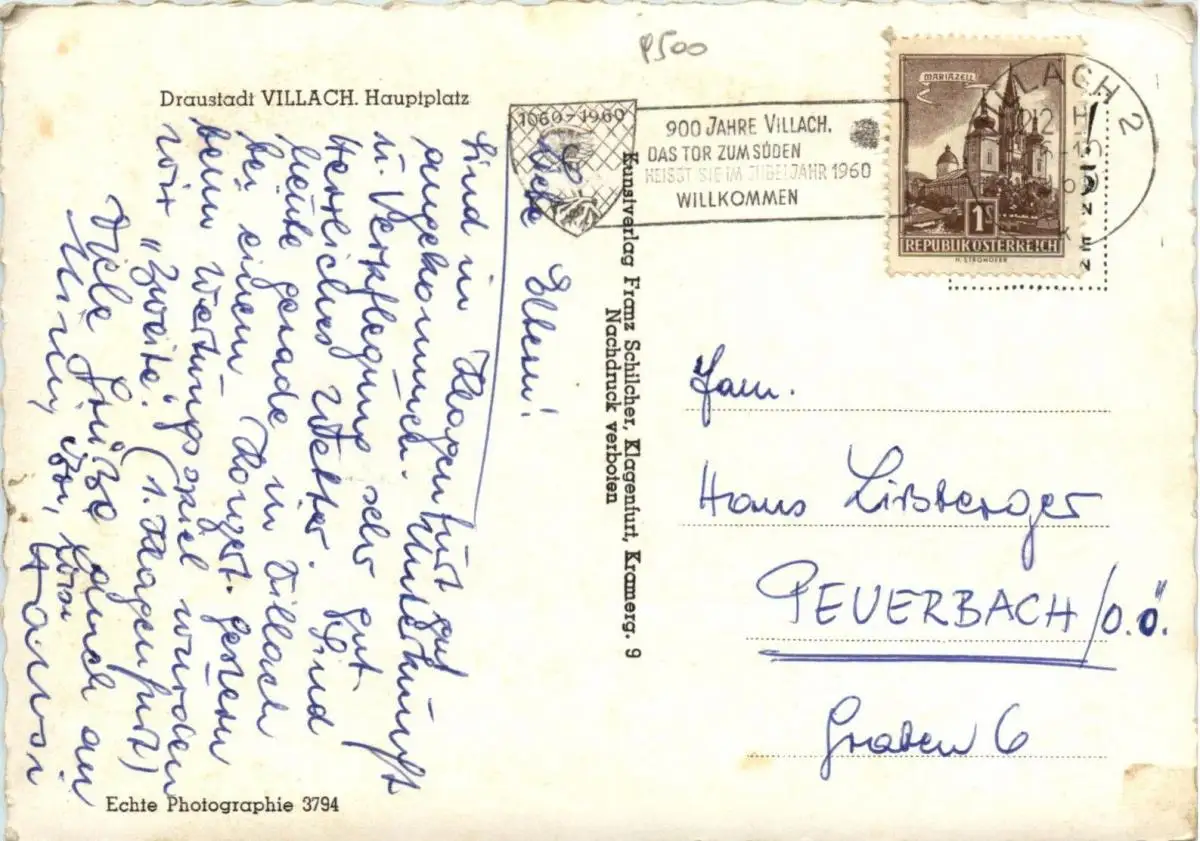 Draustadt VILLACH. Hauptplatz
Liebe Eltern!
Sind in Klagenfurt gut
angekommen. Unterkunft
u. Verpflegung sehr gut.
Herrliches Wetter. Sind
heute gerade in Villach
bei einem Konzert. Gestern
beim Wertungsspiel wurden
wir "Zweite". (1. Klagenfurt)
Viele Grüße auch an
Mimi,
Hansi
Echte Photographie 3794
Kunstverlag Franz Schilcher, Klagenfurt, Kramerg. 9
Nachdruck verboten
9500
1060-1960
900 JAHRE VILLACH,
DAS TOR ZUM SÜDEN
HEISST SIE IM JUBELJAHR 1960
WILLKOMMEN
VILLACH 2
MARIAZELL
1S
REPUBLIK ÖSTERREICH
H. STROHOFER
Fam.
Hans Lißberger
PEUERBACH/O.Ö.
Graben 6